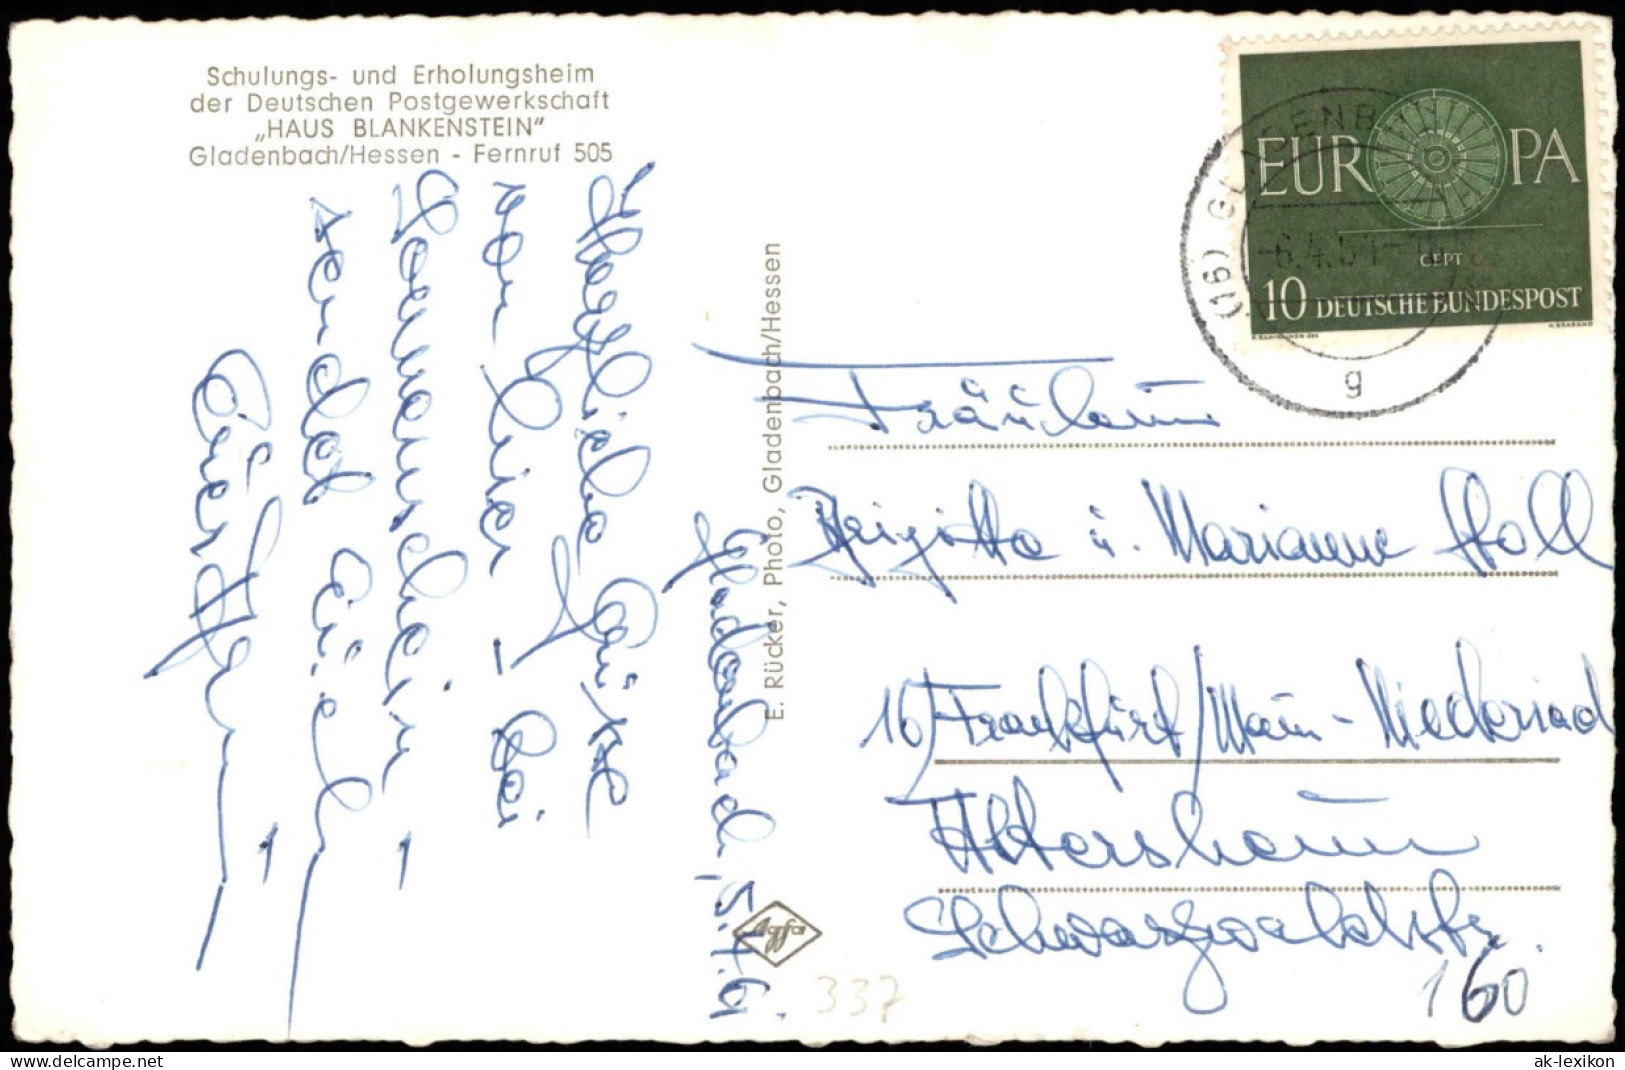 Schulungs- und Erholungsheim
der Deutschen Postgewerkschaft
„HAUS BLANKENSTEIN"
Gladenbach/Hessen - Fernruf 505
Gladenbach, 5.4.61.
Herzliche Grüße
von hier - bei
Sonnenschein,
sendet Euch
Euer
E. Rücker, Photo, Gladenbach/Hessen
Agfa
EUROPA
CEPT
10 DEUTSCHE BUNDESPOST
(16) GLADENBACH
-6.4.61-
g
Fräulein
Brigitte u. Marianne Stoll
16) Frankfurt/Main-Niederrad
Schwarzwaldstr.
160
337
delcampe.net
ak-lexikon